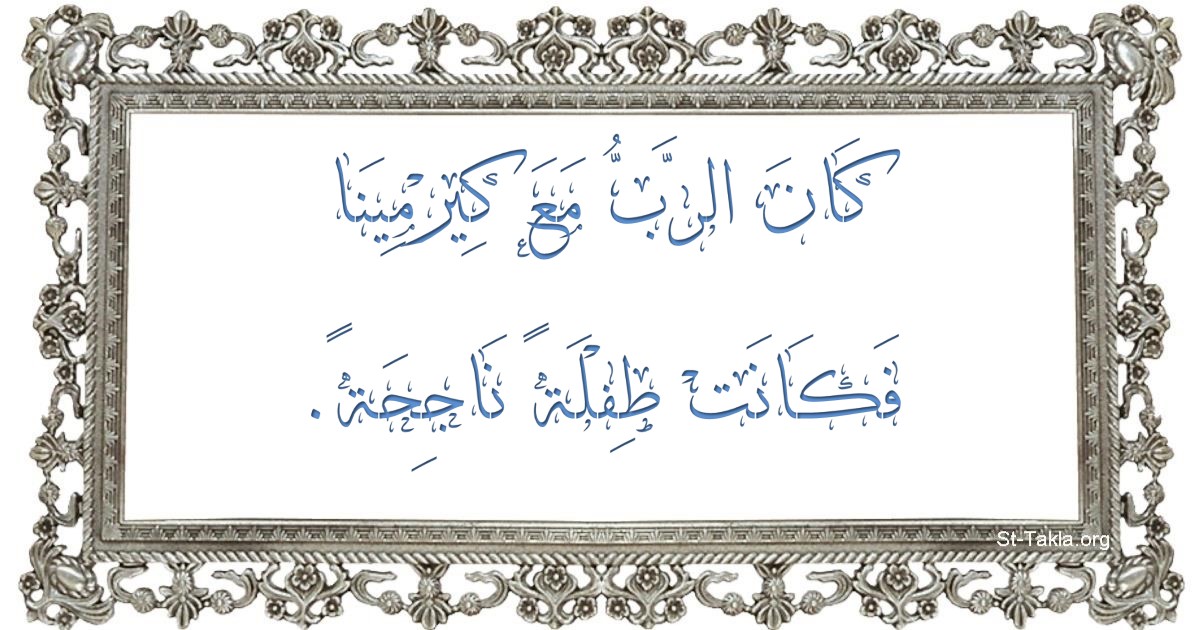 كَانَ الرَّبُّ مَعَ كِيرْمِينَا
فَكَانَتْ طِفْلَةً نَاجِحَةً.
St-Takla.org